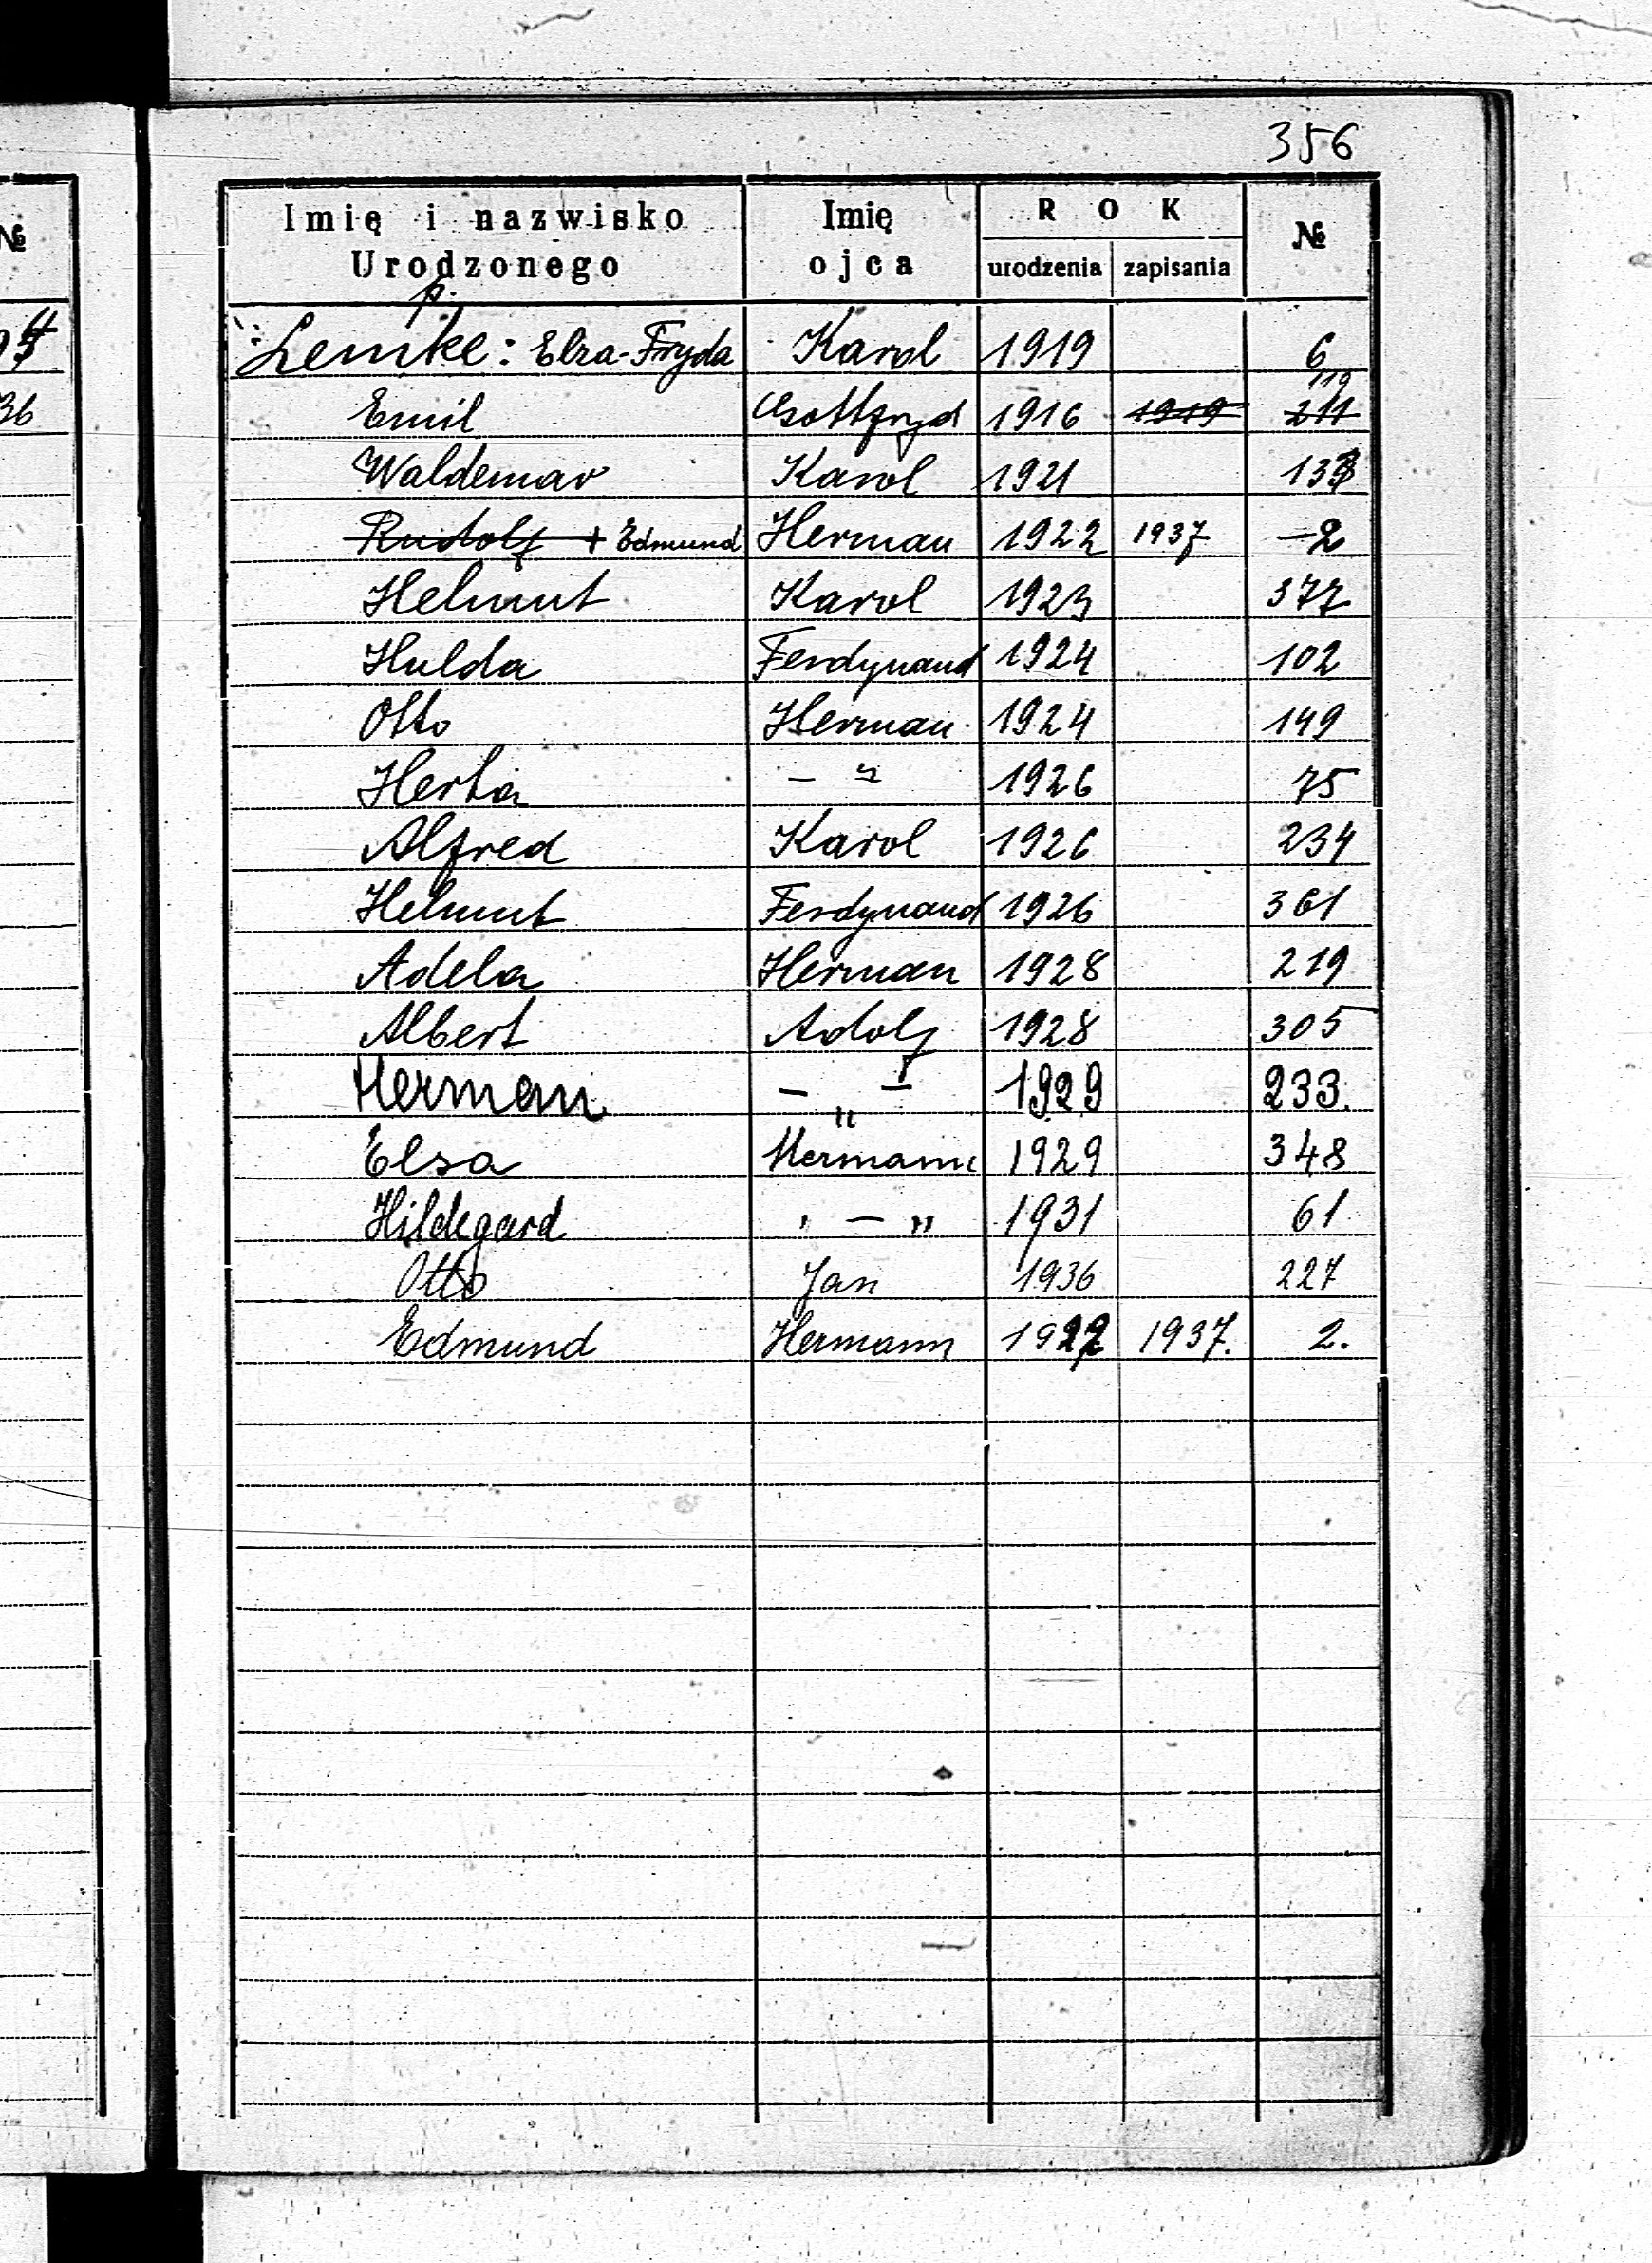 356
№
Imię i nazwisko Urodzonego
Imię ojca
ROK
urodzenia zapisania
№
p.
Lemke: Elza-Fryda Karol 1919 6
36
Emil Gottfryd 1916 1919 211 119
Waldemar Karol 1921
Rudolf + Edmund Herman 1922 1937 –2
Helmut Karol 1923 377
Hulda Ferdynand 1924 102
Otto Herman 1924 149
Herta – " 1926 75
Alfred Karol 1926 234
Helmut Ferdynand 1926 361
Adela Herman 1928 219
Albert Adolf 1928 305
Herman – " – 1929 233.
Elsa Hermann 1929 348
Hildegard " – " 1931 61
Otto Jan 1936 227
Edmund Hermann 1922 1937. 2.